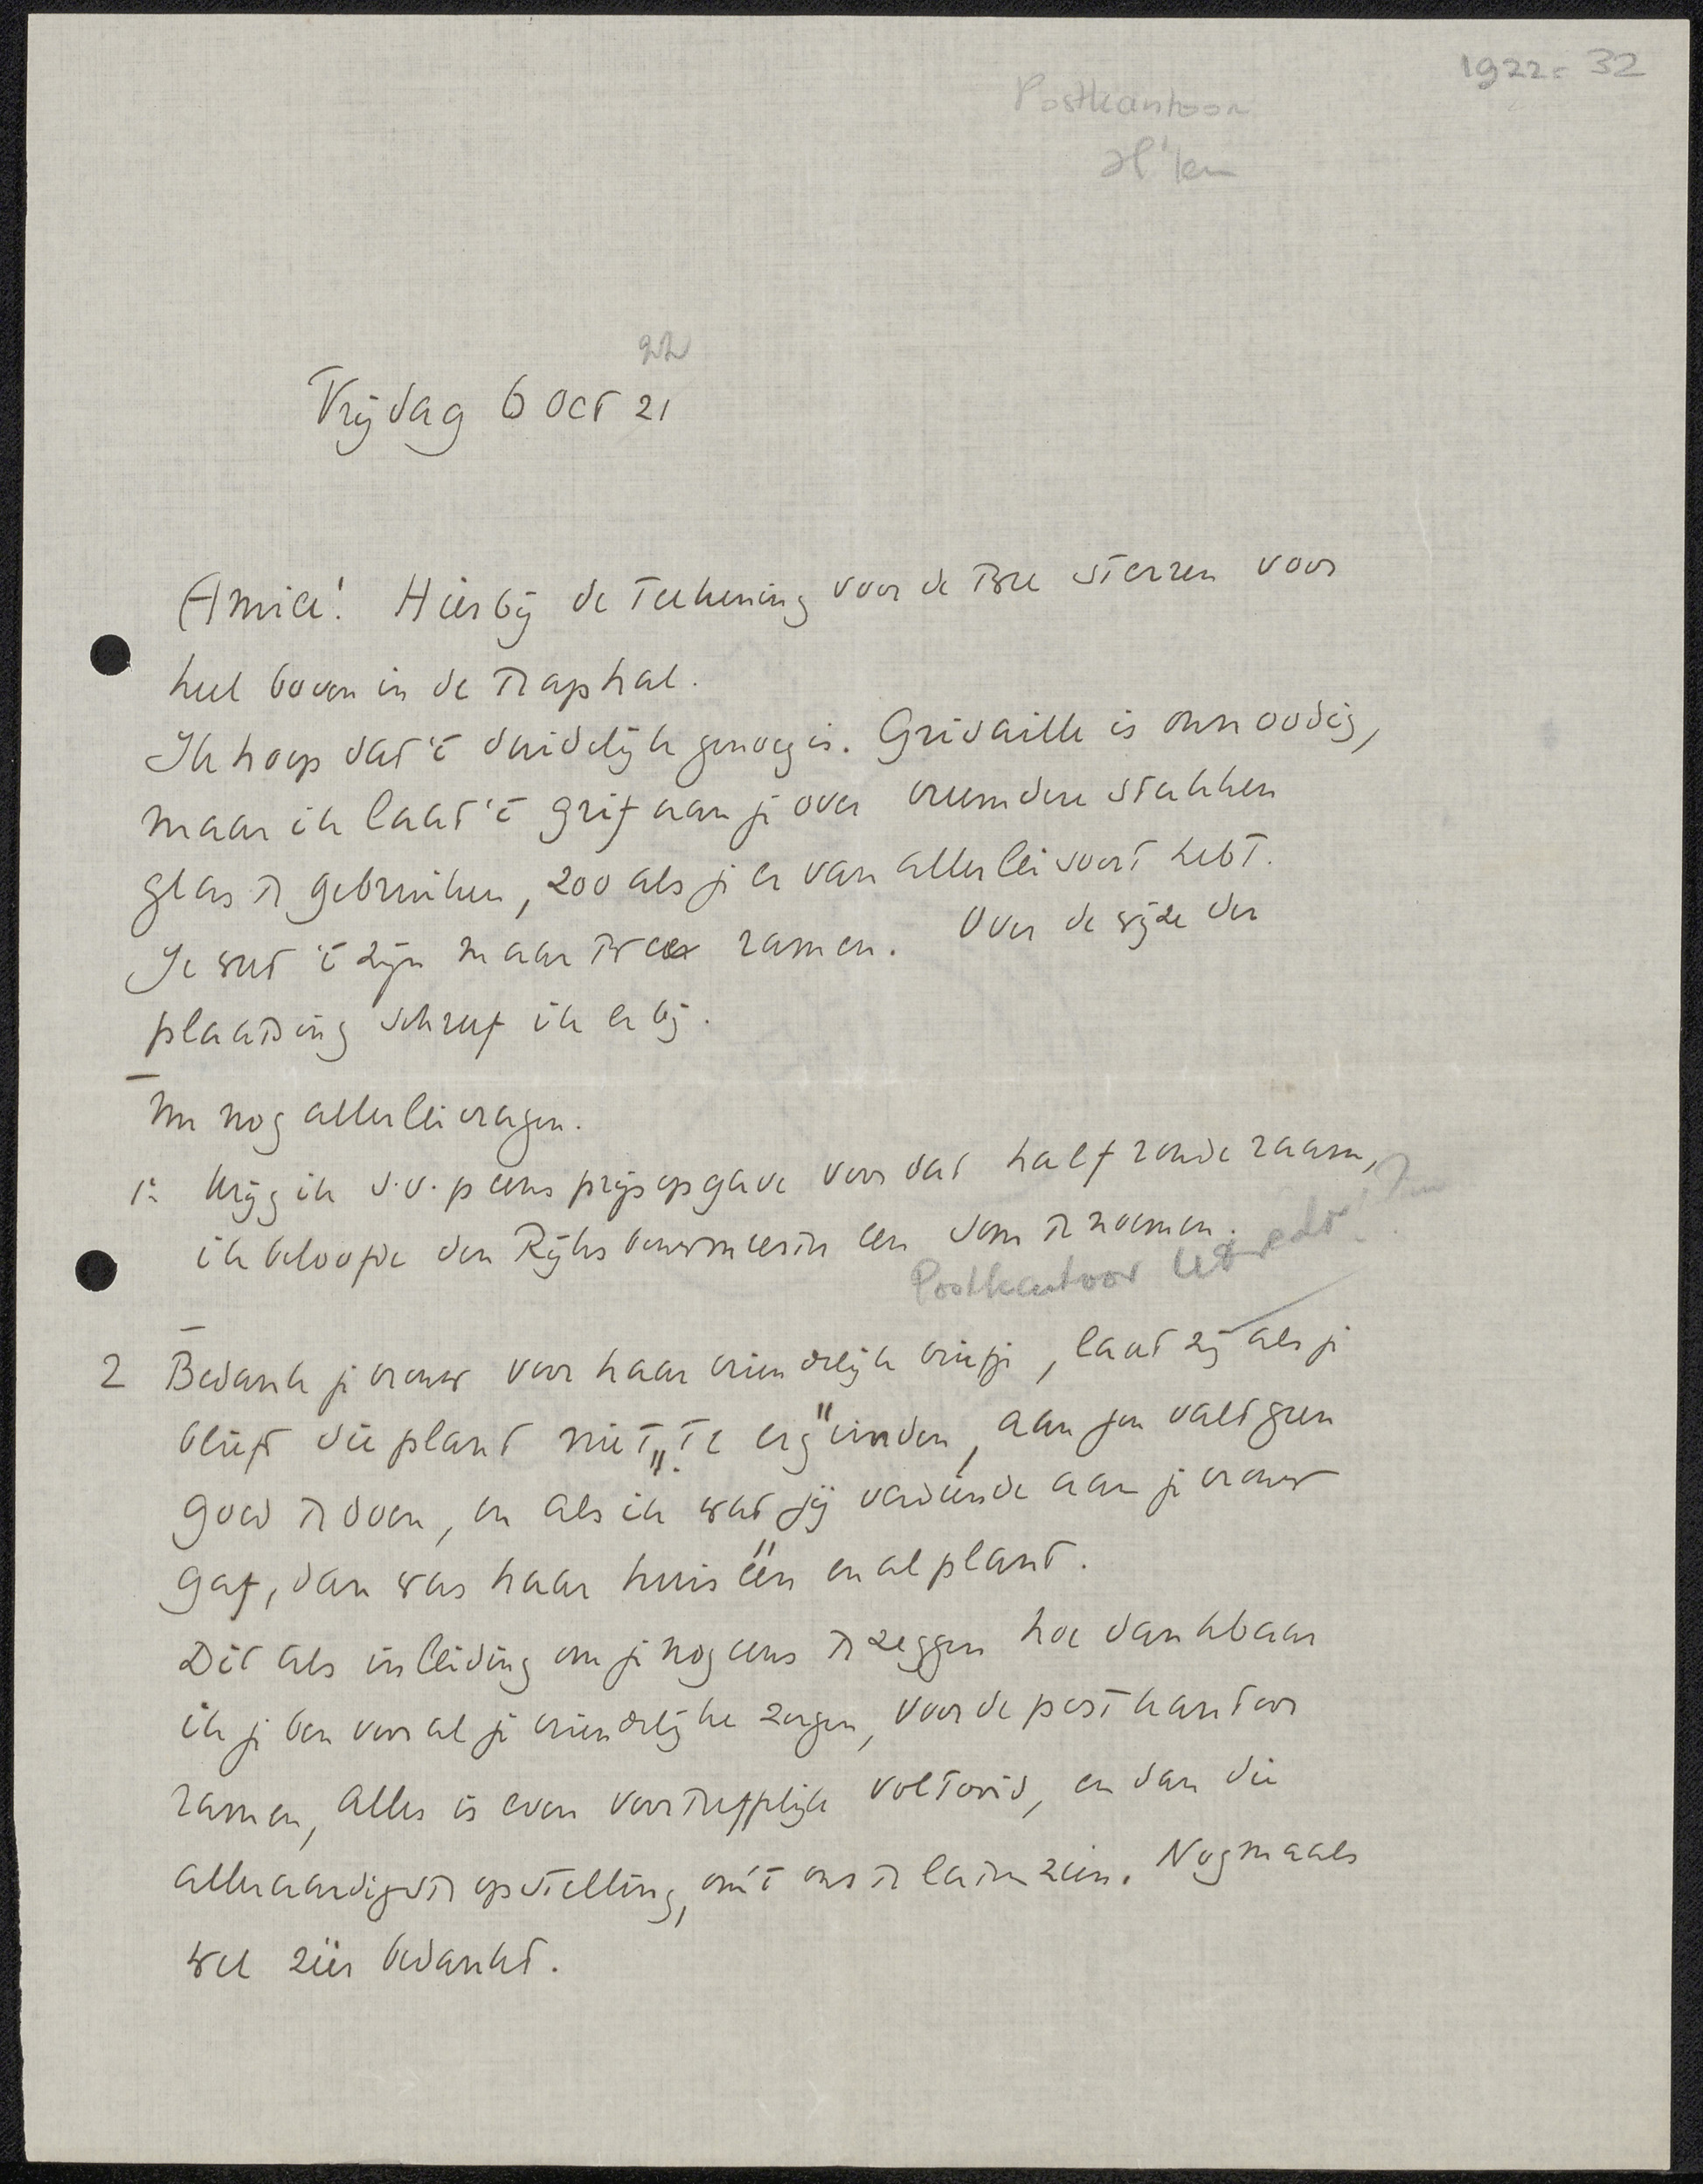 1922-32
Postkantoor
H'lem
22
Vrijdag 6 Oct 21
Amice! Hierbij de teekening voor de twee sterren voor
heel boven in de traphal.
Ik hoop dat 't duidelijk genoeg is. Grisaille is onnoodig,
maar ik laat 't grif aan je over vreemdere stukken
glas te gebruiken, zoo als je er van allerlei soort hebt.
Je weet 't zijn maar twee ramen. Over de wijze der
plaatsing schreef ik er bij.
Nu nog allerlei vragen.
1: Krijg ik s.v.p eens prijsopgave voor dat half ronde raam,
ik beloofde den Rijksbouwmeester een som te noemen.
Postkantoor
2 Bedank je vrouw voor haar vriendelijk briefje, laat zij als je
blieft die plant niet „te erg" vinden, aan jou valt geen
goed te doen, en als ik wat jij verdiende aan je vrouw
gaf, dan was haar huis één en al plant.
Dit als inleiding om je nog eens te zeggen hoe dankbaar
ik je ben voor al je vriendelijke zorgen, voor de postkantoor
ramen, alles is even voortreffelijk voltooid, en dan die
alleraardigste opstelling, om 't ons te laten zien. Nogmaals
wel zéér bedankt.